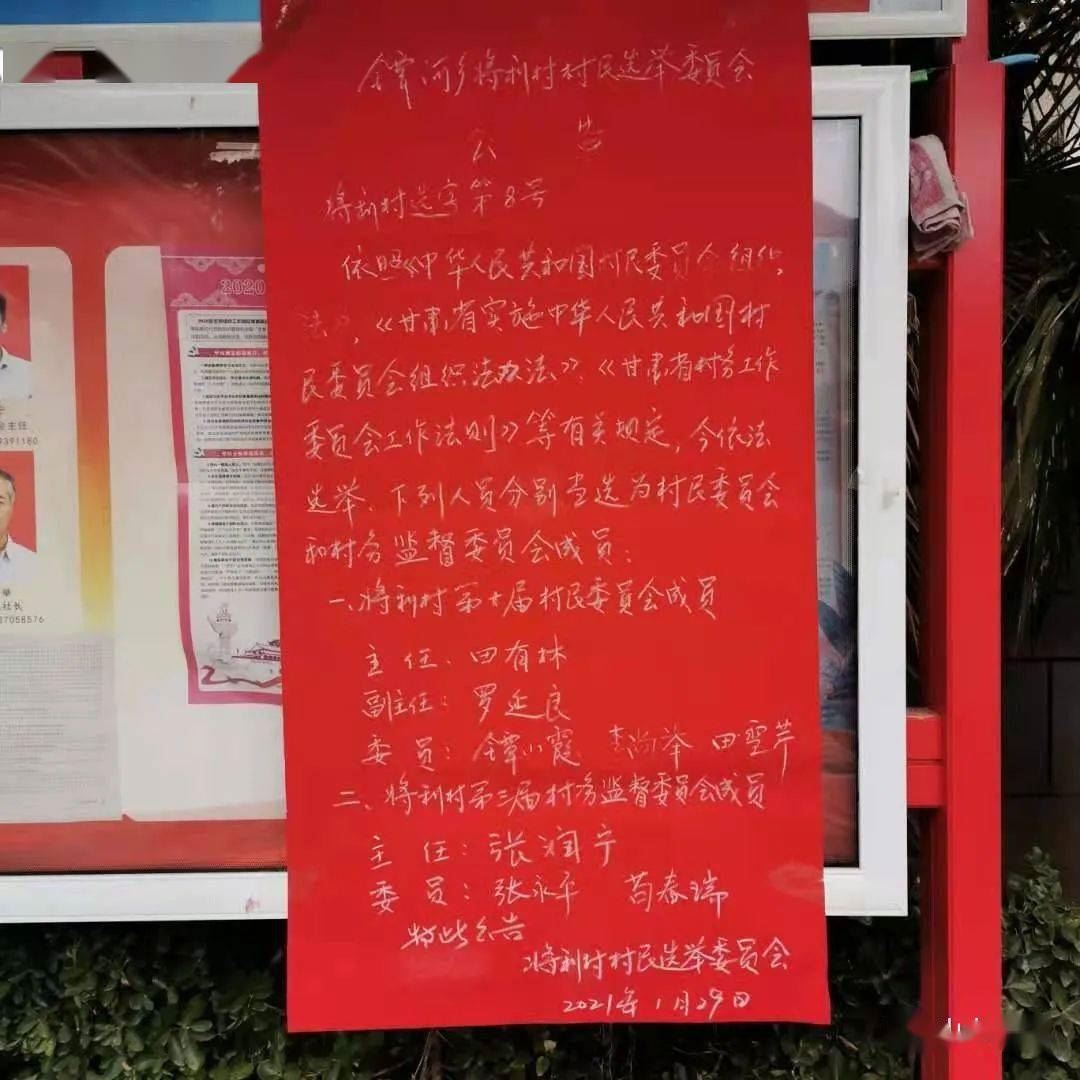 镡河乡将利村村民选举委员会
公 告
将利村选字第8号
依照《中华人民共和国村民委员会组织
法》,《甘肃省实施中华人民共和国村
民委员会组织法办法》、《甘肃省村务工作
委员会工作法则》等有关规定,今依法
选举、下列人员分别当选为村民委员会
和村务监督委员会成员:
一、将利村第十届村民委员会成员
主 任、田有林
副主任:罗延良
委 员:镡小霞 李尚举 田雪芹
二、将利村第三届村务监督委员会成员
主 任:张润宁
委 员:张永平 苟春瑞
特此公告
将利村村民选举委员会
2021年1月29日
2020
主任
9391180
社长
7058576